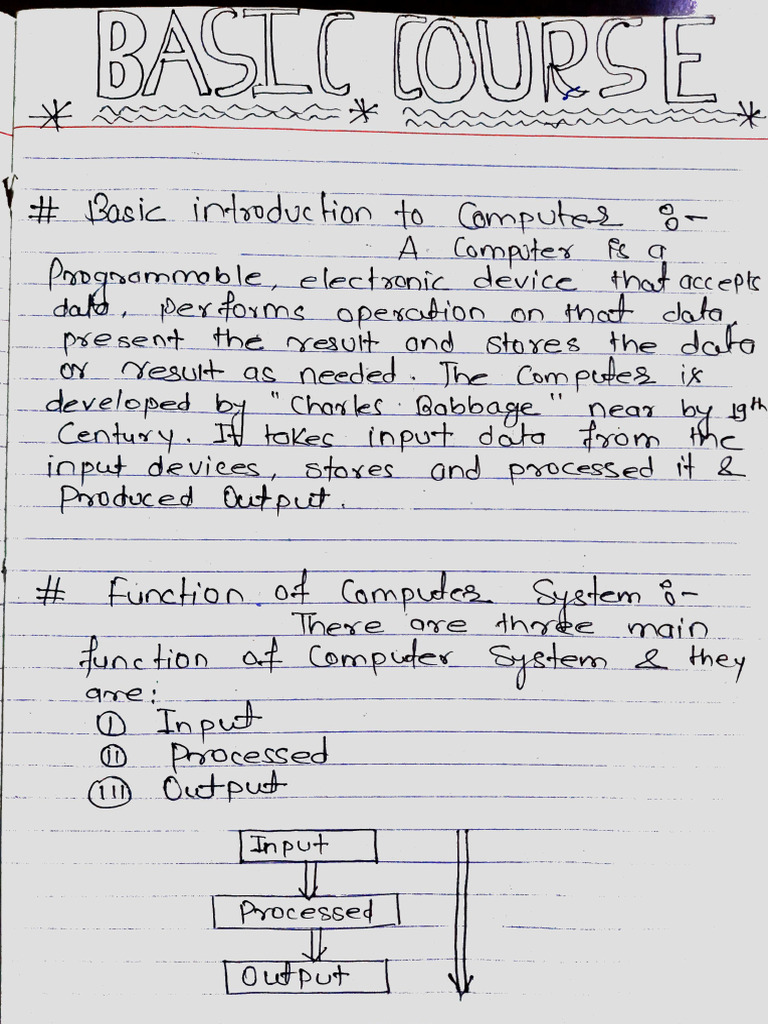 BASIC COURSE
# Basic introduction to Computer :-
A Computer is a
Programmable, electronic device that accepts
data, performs operation on that data,
present the result and stores the data
or result as needed. The Computer is
developed by "Charles Babbage" near by 19th
Century. It takes input data from the
input devices, stores and processed it &
Produced Output.
# Function of Computer System :-
There are three main
function of Computer System & they
are:
(I) Input
(II) Processed
(III) Output
Input
Processed
Output